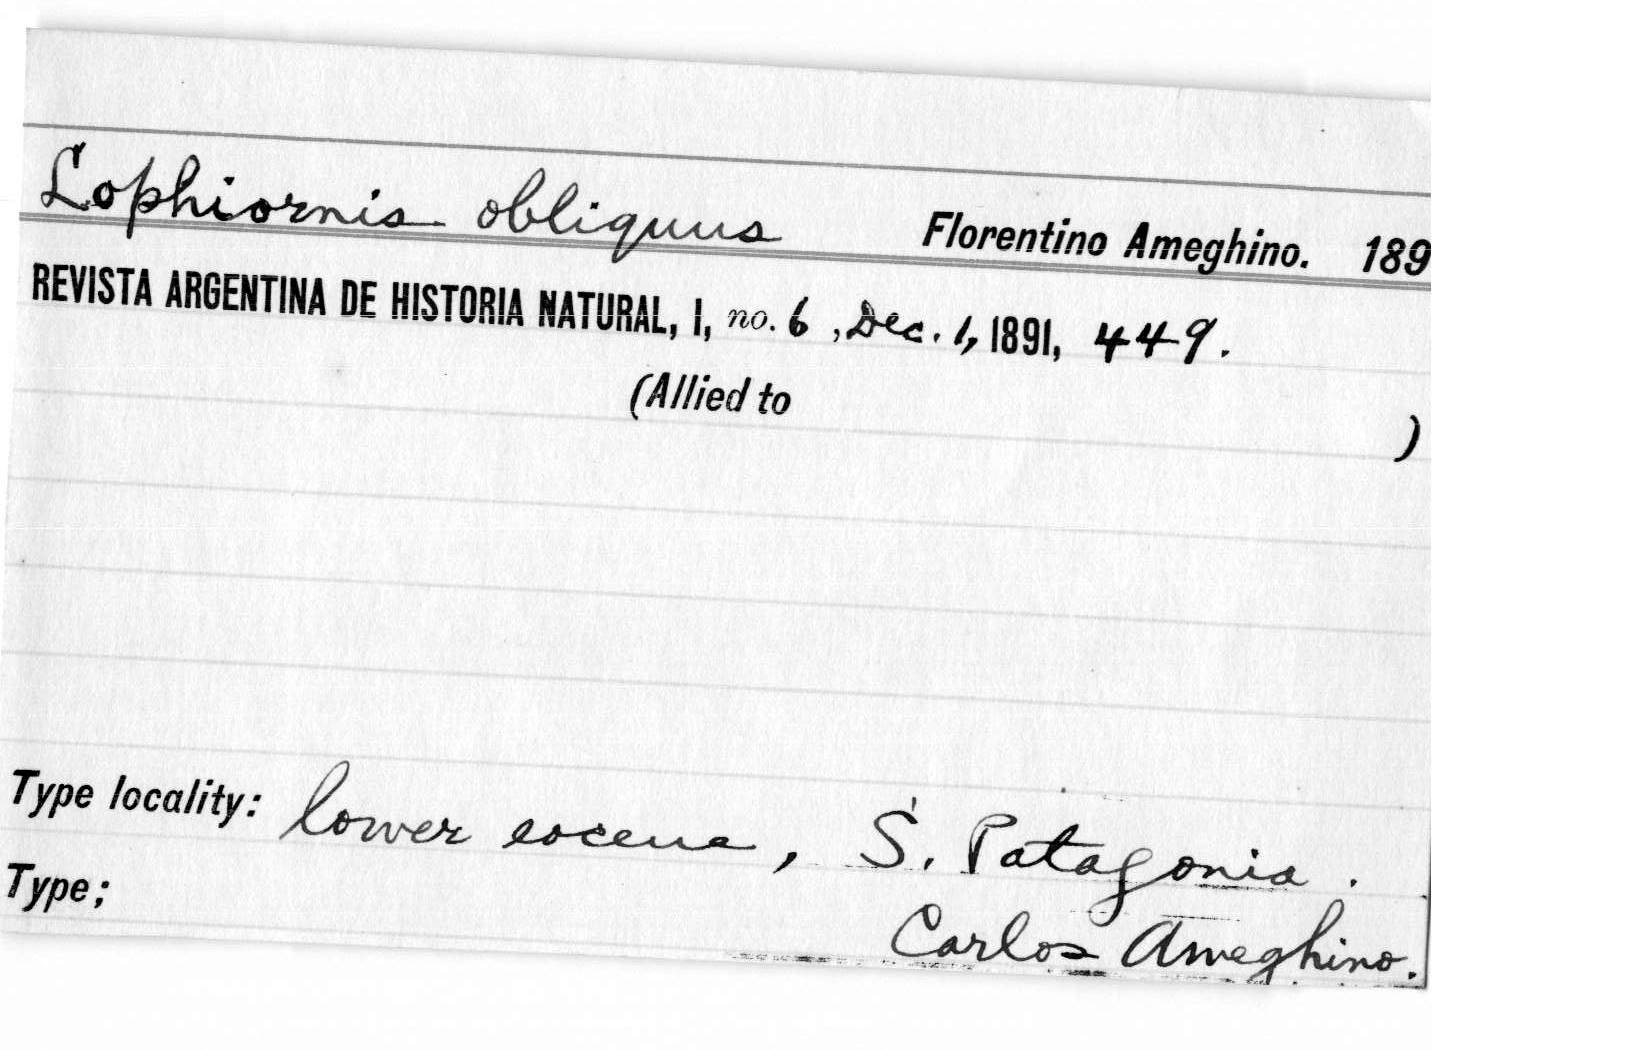 Lophiornis obliquus Florentino Ameghino. 189
REVISTA ARGENTINA DE HISTORIA NATURAL, I, no. 6, Dec. 1, 1891, 449.
(Allied to )
Type locality: lower eocene, S. Patagonia.
Type; Carlos Ameghino.